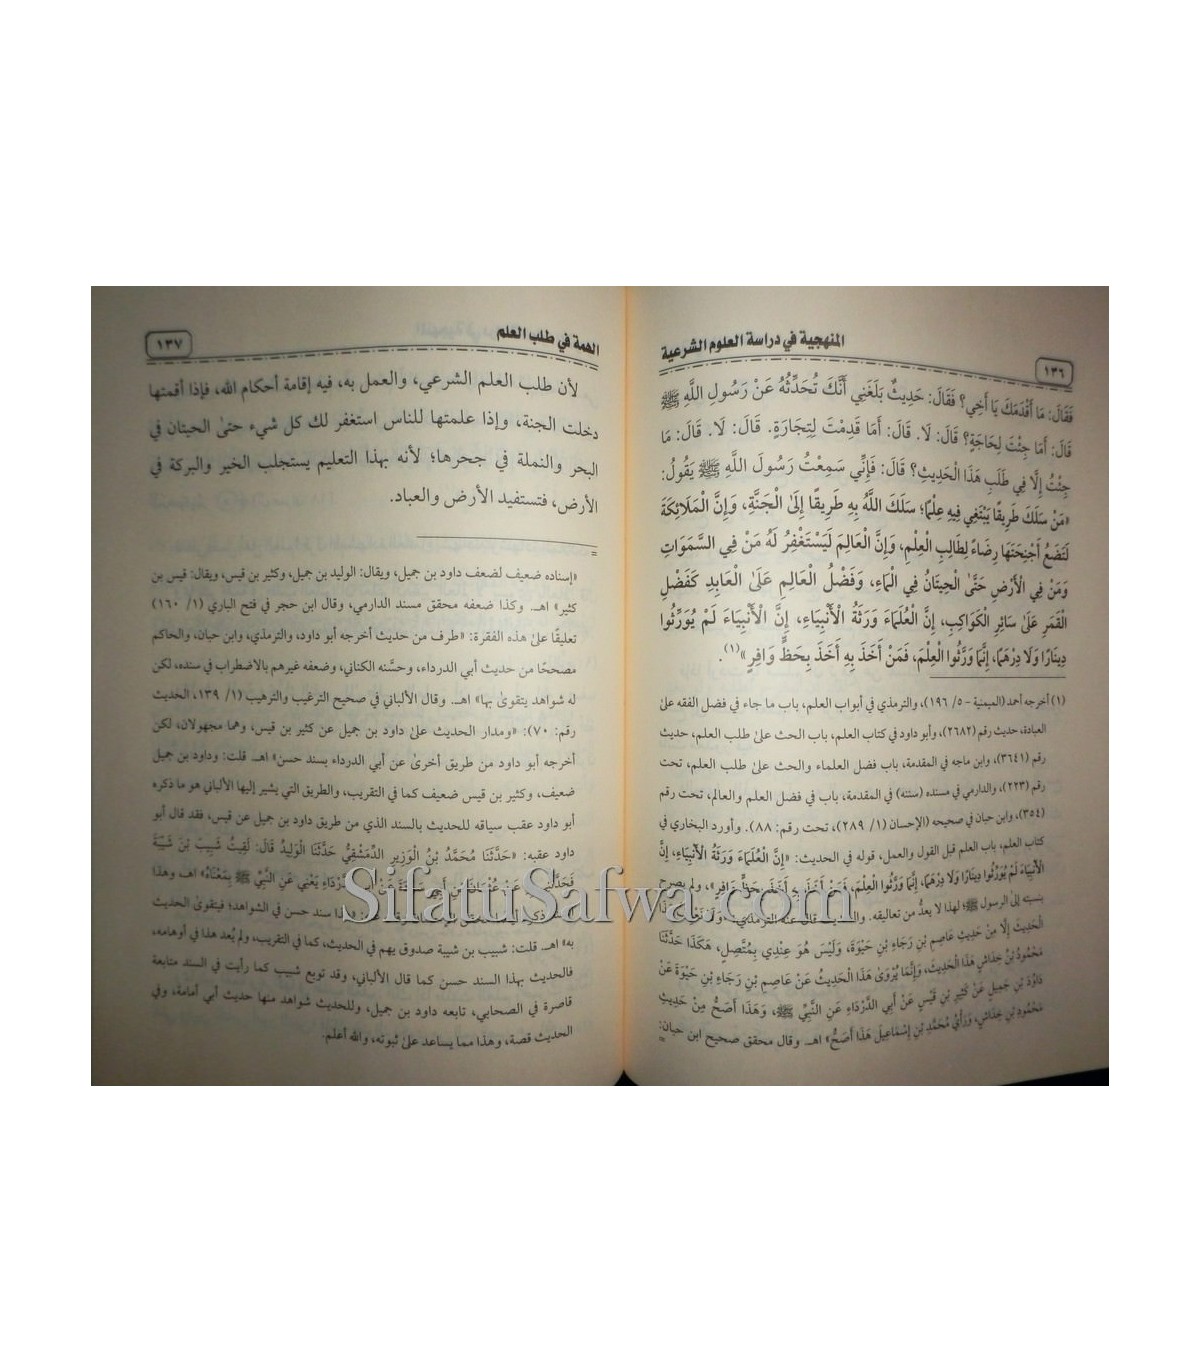 المنهجية في دراسة العلوم الشرعية
١٣٦
فَقَالَ: مَا أَقْدَمَكَ يَا أَخِي؟ فَقَالَ: حَدِيثٌ بَلَغَنِي أَنَّكَ تُحَدِّثُهُ عَنْ رَسُولِ اللَّهِ ﷺ
قَالَ: أَمَا جِئْتَ لِحَاجَةٍ؟ قَالَ: لَا. قَالَ: أَمَا قَدِمْتَ لِتِجَارَةٍ. قَالَ: لَا. قَالَ: مَا
جِئْتُ إِلَّا فِي طَلَبِ هَذَا الْحَدِيثِ؟ قَالَ: فَإِنِّي سَمِعْتُ رَسُولَ اللَّهِ ﷺ يَقُولُ:
«مَنْ سَلَكَ طَرِيقًا يَبْتَغِي فِيهِ عِلْمًا؛ سَلَكَ اللَّهُ بِهِ طَرِيقًا إِلَى الْجَنَّةِ، وَإِنَّ الْمَلَائِكَةَ
لَتَضَعُ أَجْنِحَتَهَا رِضَاءً لِطَالِبِ الْعِلْمِ، وَإِنَّ الْعَالِمَ لَيَسْتَغْفِرُ لَهُ مَنْ فِي السَّمَوَاتِ
وَمَنْ فِي الْأَرْضِ حَتَّى الْحِيتَانُ فِي الْمَاءِ، وَفَضْلُ الْعَالِمِ عَلَى الْعَابِدِ كَفَضْلِ
الْقَمَرِ عَلَى سَائِرِ الْكَوَاكِبِ، إِنَّ الْعُلَمَاءَ وَرَثَةُ الْأَنْبِيَاءِ، إِنَّ الْأَنْبِيَاءَ لَمْ يُوَرِّثُوا
دِينَارًا وَلَا دِرْهَمًا، إِنَّمَا وَرَّثُوا الْعِلْمَ، فَمَنْ أَخَذَ بِهِ أَخَذَ بِحَظٍّ وَافِرٍ»(١).
(١) أخرجه أحمد (الميمنية - ٥/ ١٩٦)، والترمذي في أبواب العلم، باب ما جاء في فضل الفقه على
العبادة، حديث رقم (٢٦٨٢)، وأبو داود في كتاب العلم، باب الحث على طلب العلم، حديث
رقم (٣٦٤١)، وابن ماجه في المقدمة، باب فضل العلماء والحث على طلب العلم، تحت
رقم (٢٢٣)، والدارمي في مسنده (سننه) في المقدمة، باب في فضل العلم والعالم، تحت رقم
(٣٥٤)، وابن حبان في صحيحه (الإحسان (١/ ٢٨٩)، تحت رقم: ٨٨). وأورد البخاري في
كتاب العلم، باب العلم قبل القول والعمل، قوله في الحديث: «إِنَّ الْعُلَمَاءَ وَرَثَةُ الْأَنْبِيَاءِ، إِنَّ
الْأَنْبِيَاءَ لَمْ يُوَرِّثُوا دِينَارًا وَلَا دِرْهَمًا، إِنَّمَا وَرَّثُوا الْعِلْمَ، فَمَنْ أَخَذَ بِهِ أَخَذَ بِحَظٍّ وَافِرٍ»، ولم يصرح
بنسبته إلى الرسول ﷺ؛ لهذا لا يعدُّ من تعاليقه. والحديث قال عنه الترمذي: «وَلَا نَعْرِفُ هَذَا
الْحَدِيثَ إِلَّا مِنْ حَدِيثِ عَاصِمِ بْنِ رَجَاءِ بْنِ حَيْوَةَ، وَلَيْسَ هُوَ عِنْدِي بِمُتَّصِلٍ، هَكَذَا حَدَّثَنَا
مَحْمُودُ بْنُ خِدَاشٍ هَذَا الْحَدِيثَ، وَإِنَّمَا يُرْوَى هَذَا الْحَدِيثُ عَنْ عَاصِمِ بْنِ رَجَاءِ بْنِ حَيْوَةَ عَنْ
دَاوُدَ بْنِ جَمِيلٍ عَنْ كَثِيرِ بْنِ قَيْسٍ عَنْ أَبِي الدَّرْدَاءِ عَنِ النَّبِيِّ ﷺ، وَهَذَا أَصَحُّ مِنْ حَدِيثِ
مَحْمُودِ بْنِ خِدَاشٍ، وَرَأْيُ مُحَمَّدِ بْنِ إِسْمَاعِيلَ هَذَا أَصَحُّ» اهـ. وقال محقق صحيح ابن حبان: =
الهمة في طلب العلم
١٣٧
لأن طلب العلم الشرعي، والعمل به، فيه إقامة أحكام الله، فإذا أقمتها
دخلت الجنة، وإذا علمتها للناس استغفر لك كل شيء حتى الحيتان في
البحر والنملة في جحرها؛ لأنه بهذا التعليم يستجلب الخير والبركة في
الأرض، فتستفيد الأرض والعباد.
=
«إسناده ضعيف لضعف داود بن جميل، ويقال: الوليد بن جميل، وكثير بن قيس، ويقال: قيس بن
كثير» اهـ. وكذا ضعفه محقق مسند الدارمي، وقال ابن حجر في فتح الباري (١/ ١٦٠)
تعليقًا على هذه الفقرة: «طرف من حديث أخرجه أبو داود، والترمذي، وابن حبان، والحاكم
مصححًا من حديث أبي الدرداء، وحسَّنه الكناني، وضعفه غيرهم بالاضطراب في سنده، لكن
له شواهد يتقوى بها» اهـ. وقال الألباني في صحيح الترغيب والترهيب (١/ ١٣٩، الحديث
رقم: ٧٠): «ومدار الحديث على داود بن جميل عن كثير بن قيس، وهما مجهولان، لكن
أخرجه أبو داود من طريق أخرى عن أبي الدرداء بسند حسن» اهـ. قلت: وداود بن جميل
ضعيف، وكثير بن قيس ضعيف كما في التقريب، والطريق التي يشير إليها الألباني هو ما ذكره
أبو داود عقب سياقه للحديث بالسند الذي من طريق داود بن جميل عن قيس، فقد قال أبو
داود عقبه: «حَدَّثَنَا مُحَمَّدُ بْنُ الْوَزِيرِ الدِّمَشْقِيُّ حَدَّثَنَا الْوَلِيدُ قَالَ: لَقِيتُ شَبِيبَ بْنَ شَيْبَةَ
فَحَدَّثَنِي عَنْ عُثْمَانَ بْنِ أَبِي سَوْدَةَ عَنْ أَبِي الدَّرْدَاءِ يَعْنِي عَنِ النَّبِيِّ ﷺ بِمَعْنَاهُ» اهـ وهذا
ذكره سند حسن في الشواهد؛ فيتقوى الحديث
به» اهـ. قلت: شبيب بن شيبة صدوق يهم في الحديث، كما في التقريب، ولم يُعد هذا في أوهامه،
فالحديث بهذا السند حسن كما قال الألباني، وقد توبع شبيب كما رأيت في السند متابعة
قاصرة في الصحابي، تابعه داود بن جميل، وللحديث شواهد منها حديث أبي أمامة، وفي
الحديث قصة، وهذا مما يساعد على ثبوته، والله أعلم.
SifatuSafwa.com